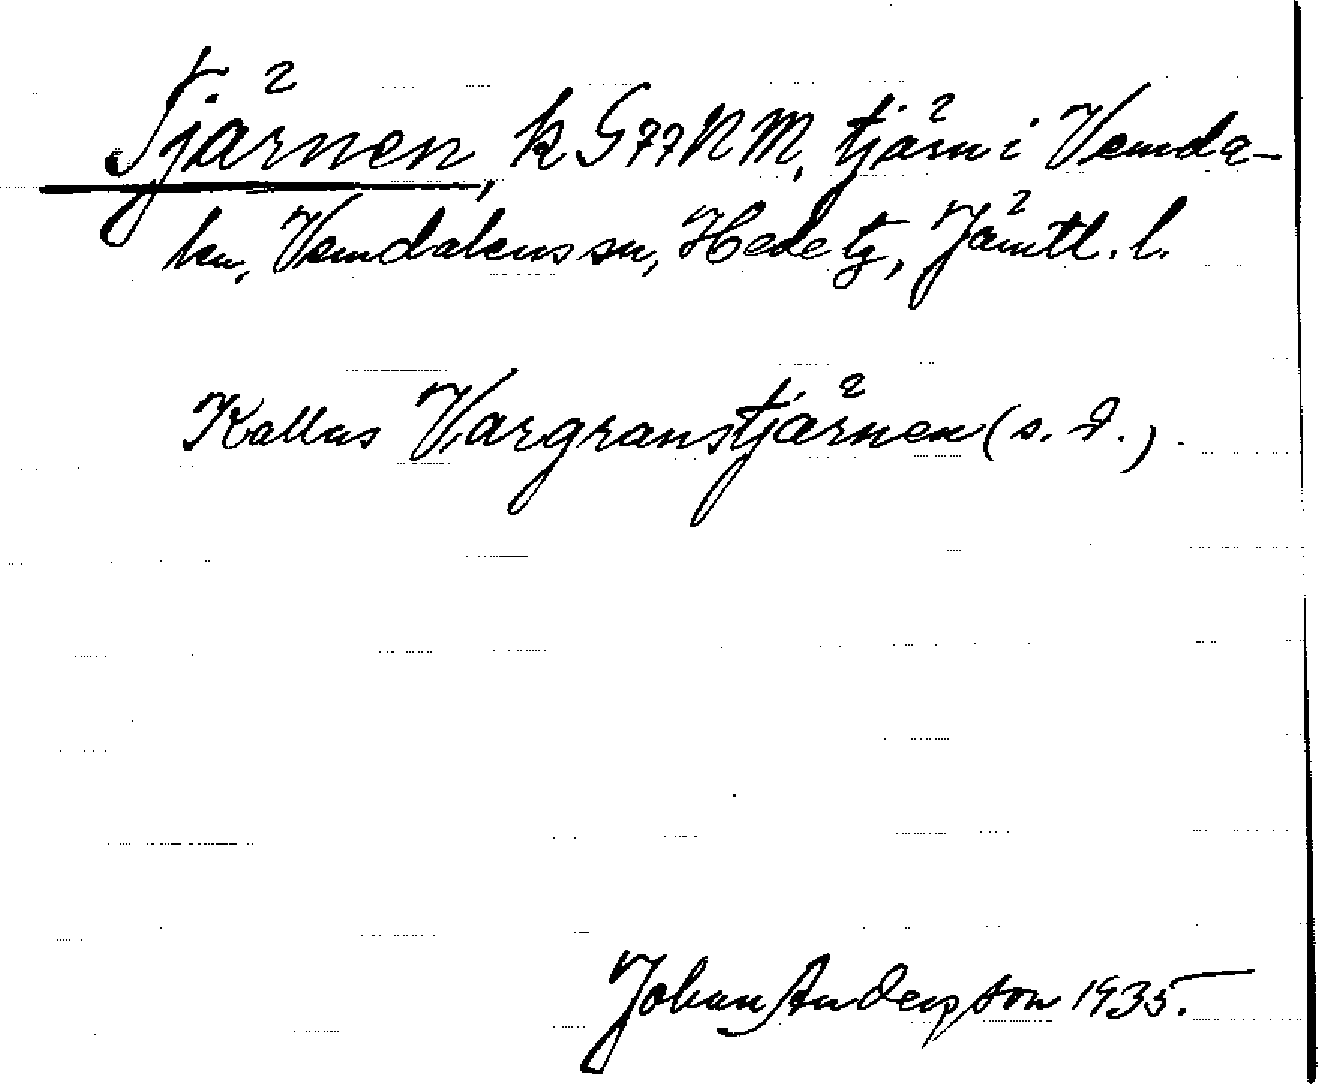 Tjärnen, k G77NM, tjärn i Vemda-
len, Vemdalens sn, Hede tg, Jämtl. l.
Kallas Vargranstjärnen (s. d.).
Johan Anderson 1935.